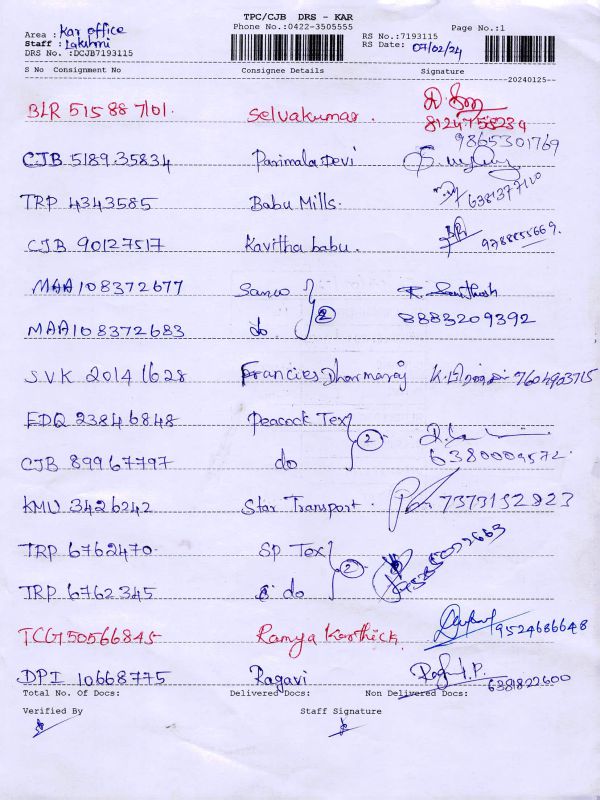 TPC/CJB DRS - KAR
Phone No.:0422-3505555
Page No.:1
Area : Kar office
RS No.:7193115
Staff : Lakshmi
RS Date: 07/02/24
DRS No. :DCJB7193115
S No Consignment No Consignee Details Signature
20240125
BLR 515887101. Selvakumar. 8124758234
CJB 518935834 Parimala Devi 9865301769
TRP 4343585 Babu Mills. 6381377120
CJB 90127517 Kavitha babu.
MAA108372677 Sanco
MAA108372683 do 2 8883209392
SVK 20141628 Francies Dharmaraj 7604903715
EDQ 23846848 Peacock Tex
CJB 89967797 do 2 6380009572.
KMU 3426242 Star Transport. 7373132823
TRP 6762470 SP Tex
TRP 6762345 do 2
TCG150566845 Ramya Karthick 9524686648
DPI 10668775 Ragavi 6381822600
Total No. Of Docs: Delivered Docs: Non Delivered Docs:
Verified By Staff Signature